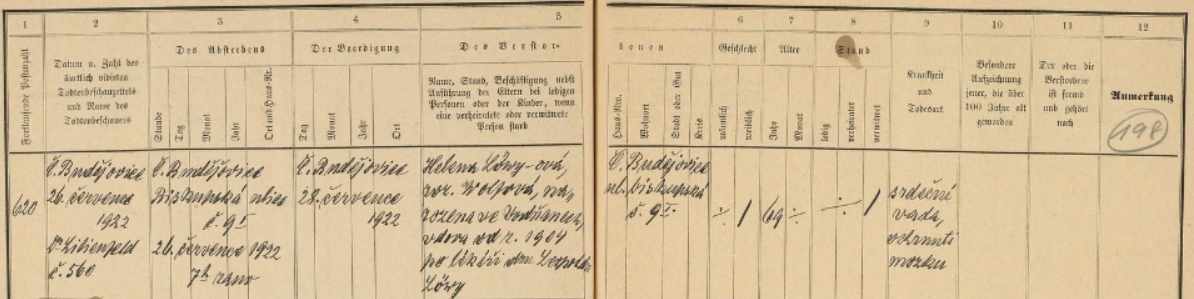 1
2
3
4
5
6
7
8
9
10
11
12
Fortlaufende Postenzahl
Datum u. Zahl des
ämtlich vidirten
Todtenbeschauzettels
und Name des
Todtenbeschauers
Des Absterbens
Stunde
Tag
Monat
Jahr
Ort und Haus-Nr.
Der Beerdigung
Tag
Monat
Jahr
Ort
Des Verstor-
Name, Stand, Beschäftigung nebst
Anführung der Eltern bei ledigen
Personen oder der Kinder, wenn
eine verheiratete oder verwitwete
Person starb
benen
Haus-Nro.
Wohnort
Stadt oder Gut
Kreis
Geschlecht
männlich
weiblich
Alter
Jahr
Monat
Stand
ledig
verheiratet
verwitwet
Krankheit
und
Todesart
Besondere
Aufzeichnung
jener, die über
100 Jahre alt
geworden
Der oder die
Verstorbene
ist fremd
und gehört
nach
Anmerkung
198
620
Č. Budějovice
26. července
1922
Dr Lilienfeld
č. 560
Č. Budějovice
Biskupská ulice
č. 9 I
26. července 1922
7h ráno
Č. Budějovice
28. července
1922
Helena Löwy-ová,
roz. Wolfová, na-
rozena ve Vodňanech,
vdova od r. 1904
po lékáři dru Leopoldu
Löwy
Č. Budějovice
ul. biskupská
č. 9 I.
÷ 1 69 ÷ ÷ 1
srdeční
vada,
ochrnutí
mozku